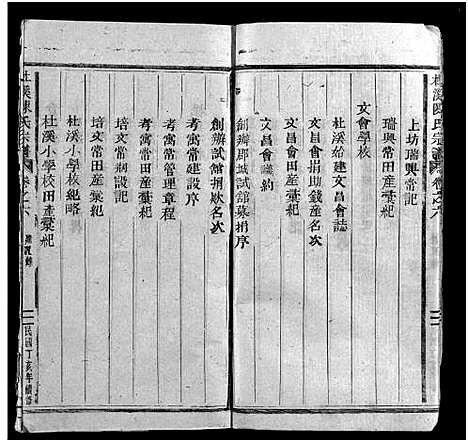 杜溪陳氏宗譜 卷之六
上坊瑞興常記
瑞興常田產彙紀
文會學校
杜溪始建文昌會誌
文昌會捐助錢產名次
文昌會田產彙紀
文昌會議約
創辦郡城試館募捐序
創辦試館捐欵名次
考寓常建設序
考寓常管理章程
考寓常田產彙紀
培文常嗣設記
培文常田產彙紀
杜溪小學校紀略
杜溪小學校田產彙紀
杜溪陳氏宗譜 卷之六
民國丁亥年續修